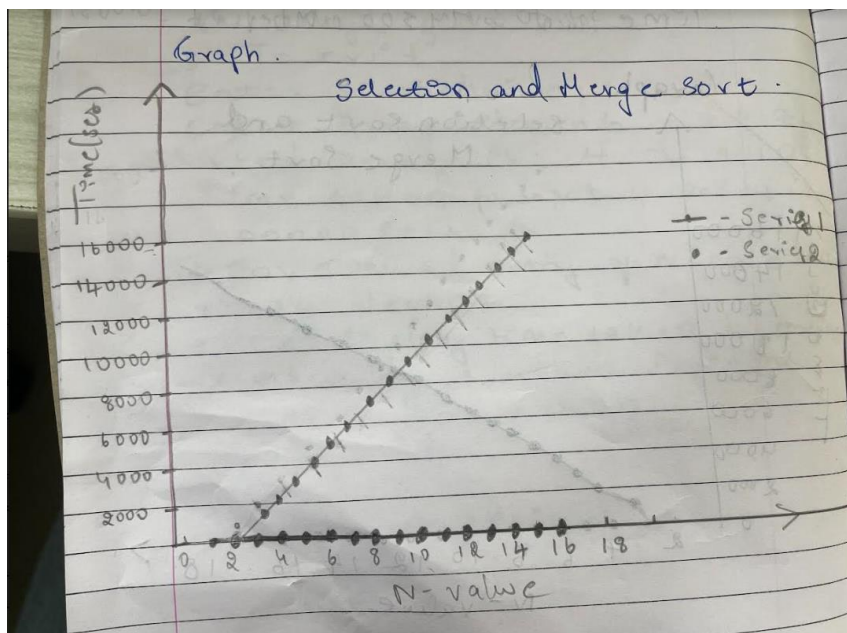 Graph.
Selection and Merge sort.
Time(sec)
- Series1
- Series2
16000
14000
12000
10000
8000
6000
4000
2000
0 2 4 6 8 10 12 14 16 18
N-value